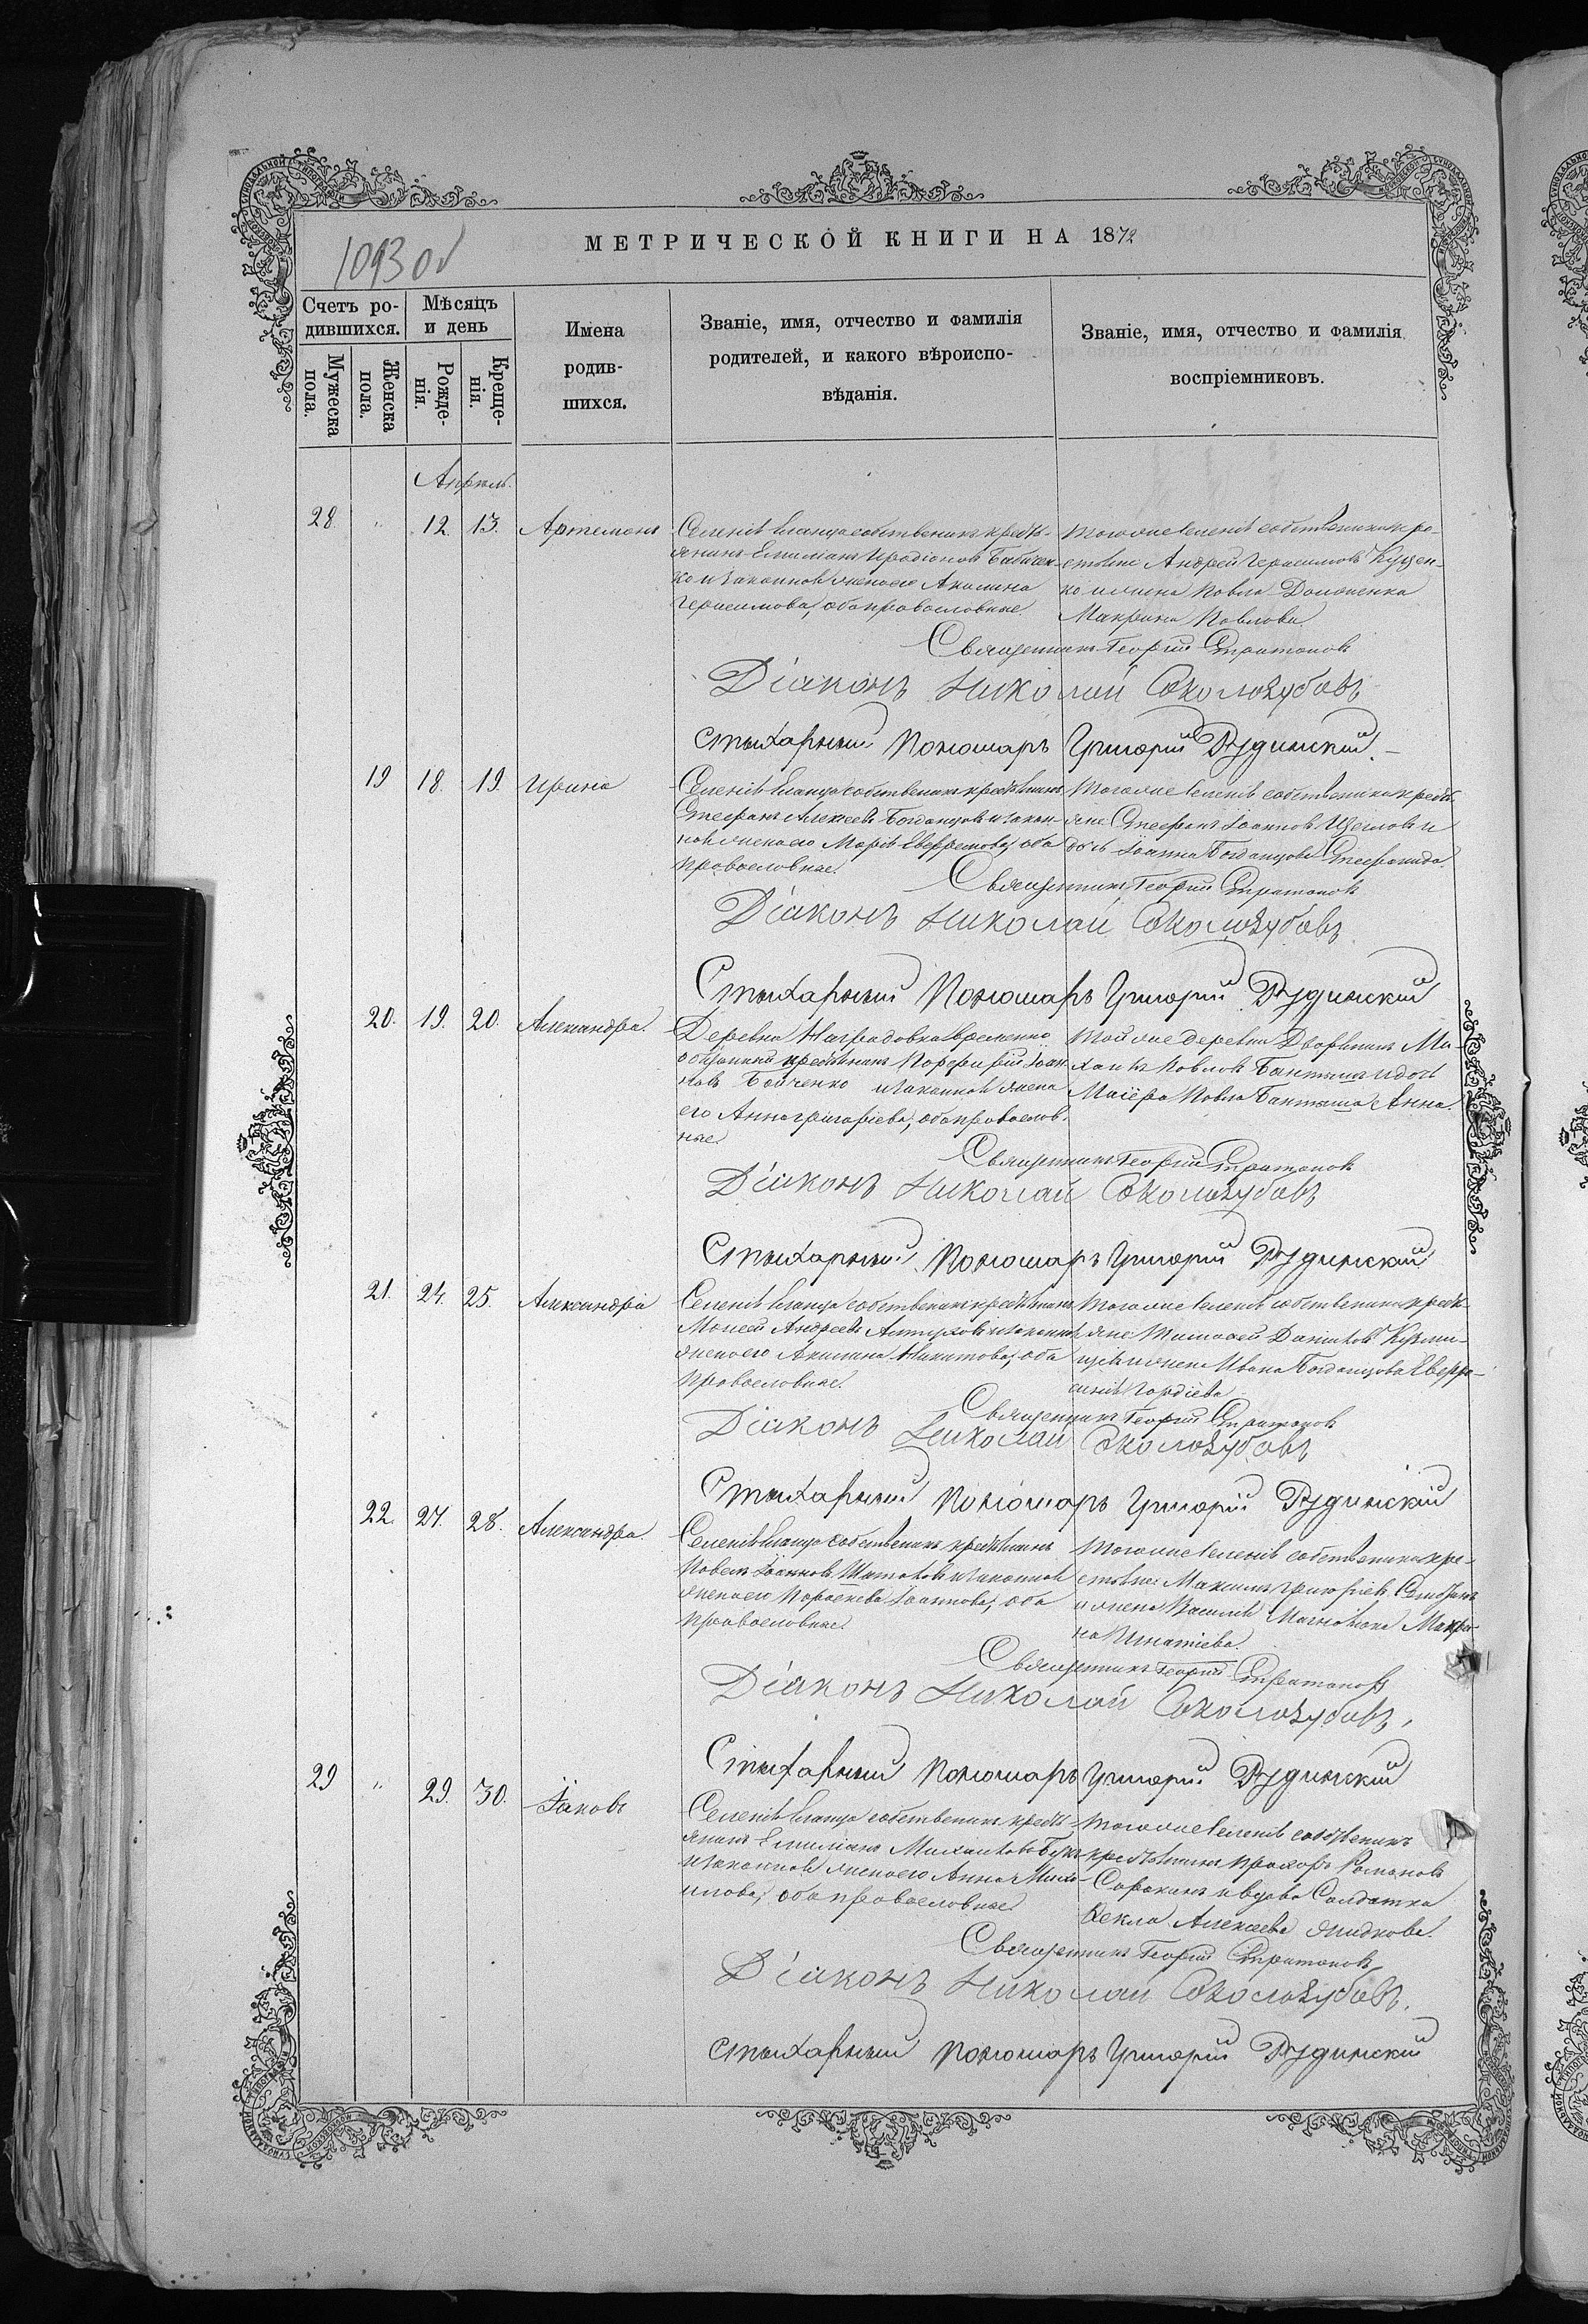 1093 об
МЕТРИЧЕСКОЙ КНИГИ НА 1872
Счетъ ро-
дившихся.
Мужеска
пола.
Женска
пола.
Мѣсяцъ
и день
Рожде-
нія.
Креще-
нія.
Имена
родив-
шихся.
Званіе, имя, отчество и фамилія
родителей, и какого вѣроиспо-
вѣданія.
Званіе, имя, отчество и фамилія
воспріемниковъ.
Апрель.
28 " 12. 13. Артемонъ
Селенія собственикъ крестья-
нинъ Емиліанъ Иродіоновъ Бабичен-
ко и законная жена его Акилина
Герасимова, оба православные.
Того же селенія собственики кре-
стьяне Андрей Герасимовъ Куцен-
ко и жена Павла Доломенка
Макрина Павлова
Священникъ Георгій Стратоновъ
Діаконъ Николай Соколозубовъ
стихарный Пономарь Григорій Рудинскій.
19 18. 19. Ирина
Селенія собственикъ крестьянинъ
Стефанъ Алексеевъ Богданцовъ и закон-
ная жена его Марія Евфремова, оба
православные.
Того же селенія собственики кресть-
яне Стефанъ Іоанновъ Щегловъ и
дочь Іоанна Богданцова Стефанида
Священникъ Георгій Стратоновъ
Діаконъ Николай Соколозубовъ
Стихарный Пономарь Григорій Рудинскій
20. 19. 20. Александра.
Деревни Наградовка временно
обязаный крестьянинъ Порфирій Іоан-
новъ Бойченко и законная жена
его Анна Григоріева, оба православ-
ные.
Той же деревни Дворянинъ Ми-
хаилъ Павловъ Бантышъ и дочь
Маіера Павла Бантыша Анна.
Священникъ Георгій Стратоновъ
Діаконъ Николай Соколозубовъ
Стихарный Пономарь Григорій Рудинскій
21. 24. 25. Александра
Селенія собственикъ крестьянинъ
Моисей Андреевъ и законная
жена его Акилина Никитова, оба
православные.
Того же селенія собственики кресть-
яне Тимофей Даниловъ
и жена Ивана Богданцова Евфро-
синія Гордіева
Священникъ Георгій Стратоновъ
Діаконъ Николай Соколозубовъ
Стихарный Пономарь Григорій Рудинскій
22. 27. 28. Александра.
Селенія собственикъ крестьянинъ
Павелъ Іоанновъ и законная
жена его Параскева Іоаннова, оба
православные.
Того же селенія собственики кре-
стьяне Максимъ Григоріевъ
и жена Василія Макри-
на Игнатіева.
Священникъ Георгій Стратоновъ
Діаконъ Николай Соколозубовъ,
Стихарный Пономарь Григорій Рудинскій
29 " 29. 30. Іаковъ
Селенія собственикъ кресть-
янинъ Емиліанъ Михаиловъ
и законная жена его Анна Миха-
илова, оба православные.
Того же селенія собственикъ
крестьянинъ Прохоръ Романовъ
Сорокинъ и вдова Солдатка
Ѳекла Алексеева Жидкова.
Священникъ Георгій Стратоновъ
Діаконъ Николай Соколозубовъ.
стихарный Пономарь Григорій Рудинскій